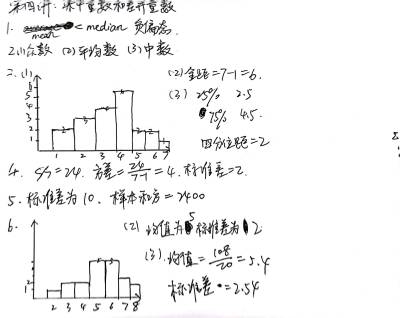 第四讲:集中量数和差异量数
1. mean < median 负偏态.
2.(1)众数 (2)平均数 (3)中数
2.(1) (2)全距=7-1=6.
(3) 25% 2.5
75% 4.5
四分位距=2
5
4
3
2
1
1 2 3 4 5 6 7
4. SS=24. 方差=24/7-1=4. 标准差=2.
5. 标准差为10. 样本和方=2400
6. (2) 均值为5 标准差为2
(3). 均值=108/20=5.4
标准差=2.54
2
1
1 2 3 4 5 6 7 8